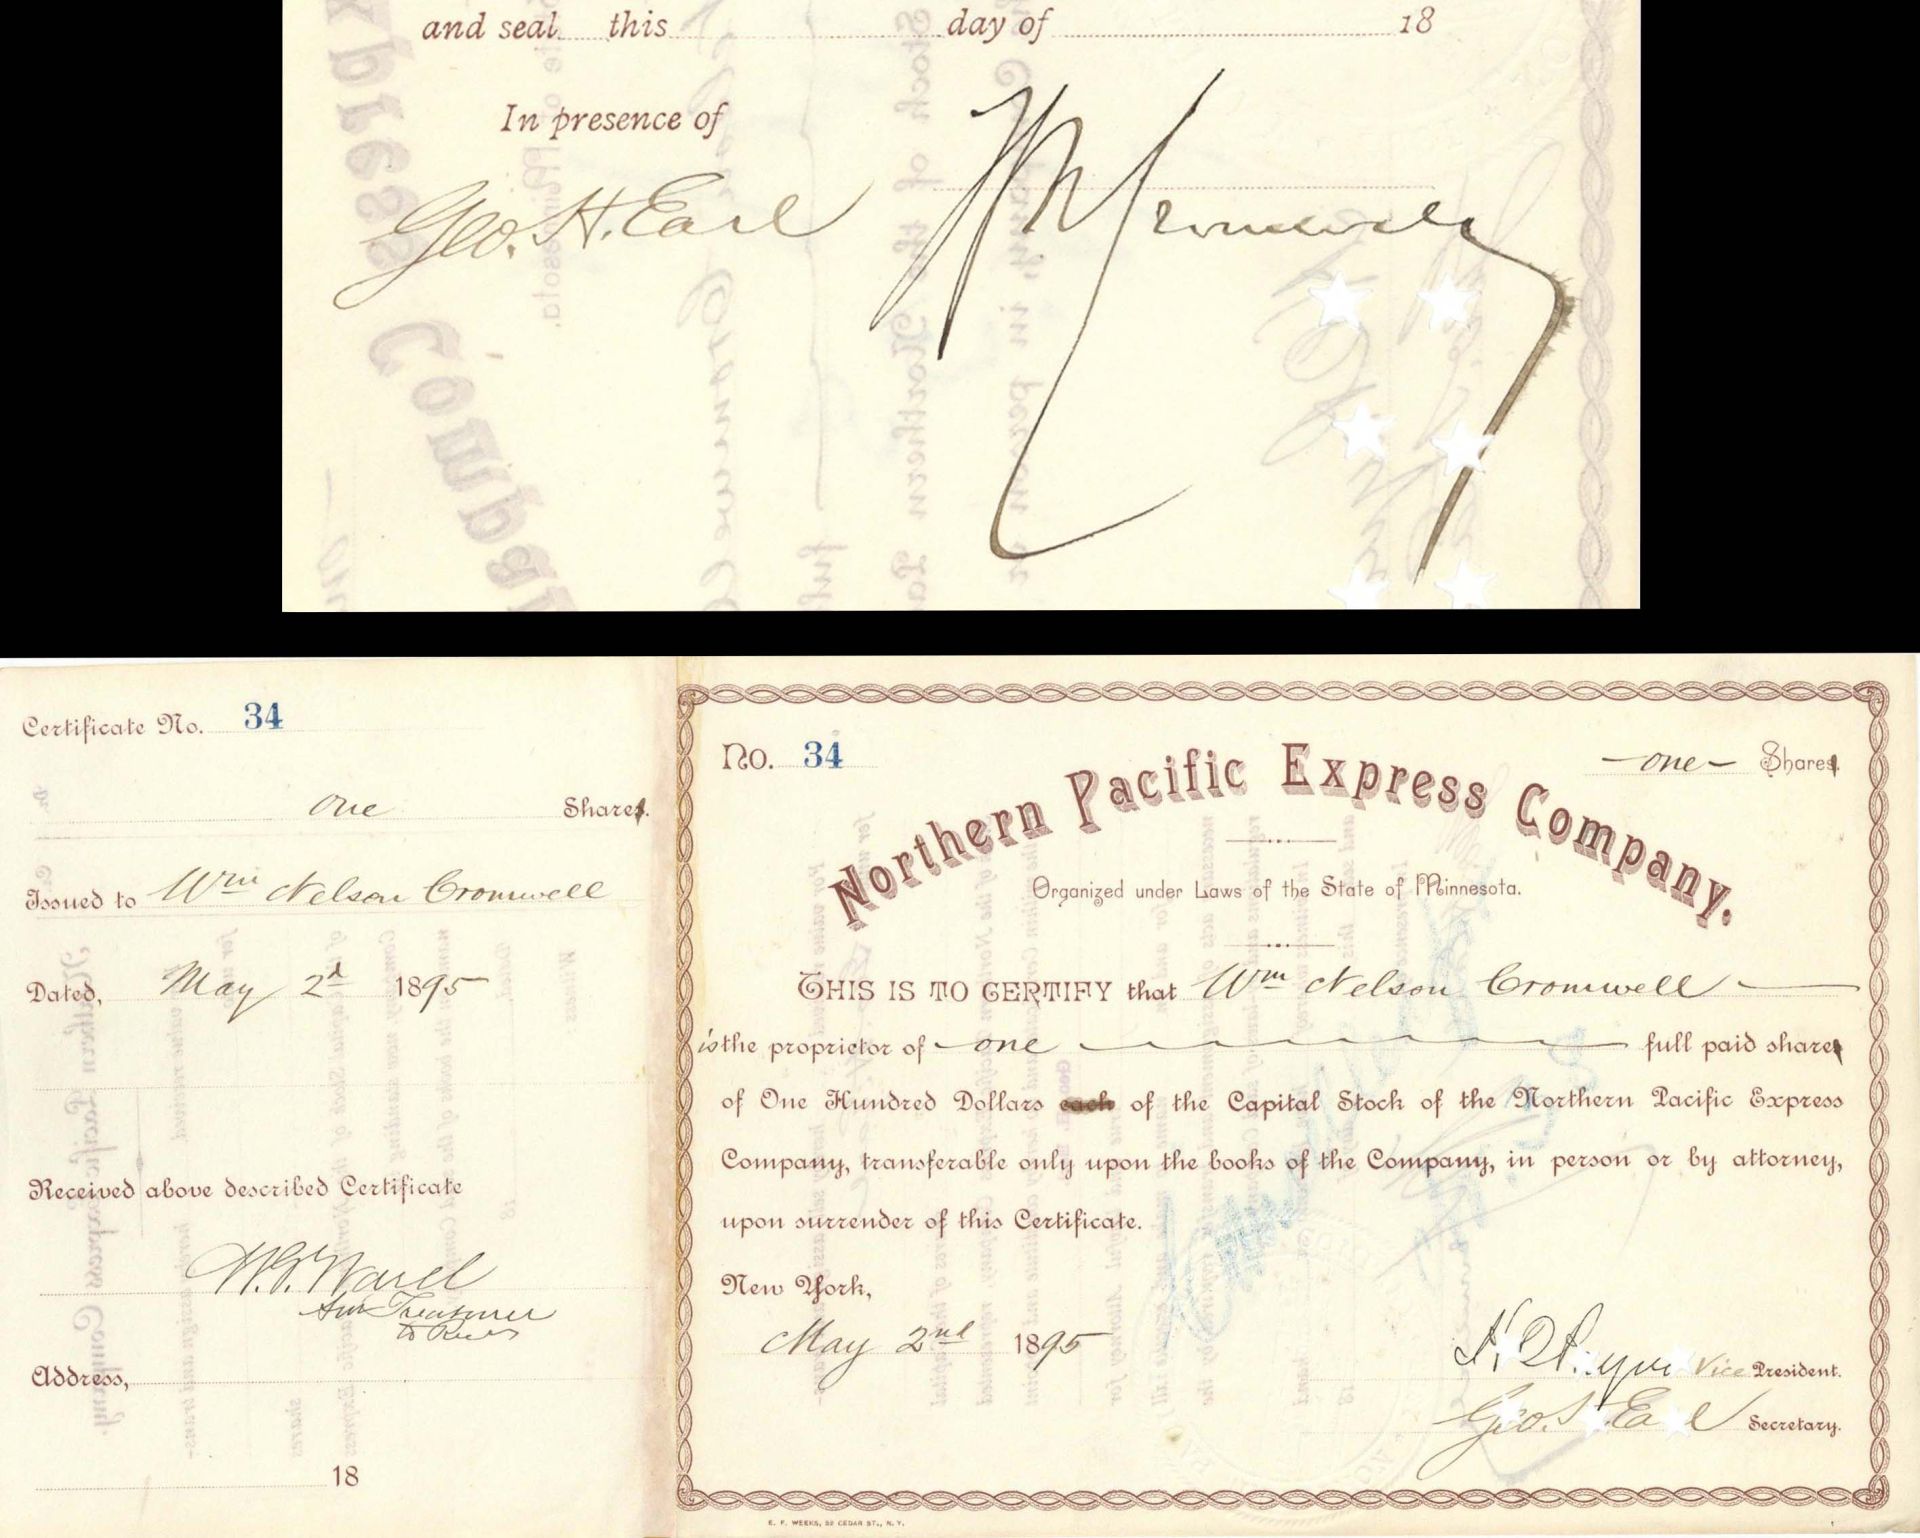 and seal this day of 18
In presence of
Geo. H. Earl Wm Cromwell
Certificate No. 34
one Share.
Issued to Wm Nelson Cromwell
Dated, May 2d 1895
Received above described Certificate
Treasurer
Address,
18
No. 34
—one— Share
Northern Pacific Express Company.
Organized under Laws of the State of Minnesota.
THIS IS TO CERTIFY that Wm Nelson Cromwell
is the proprietor of one full paid share
of One Hundred Dollars each of the Capital Stock of the Northern Pacific Express
Company, transferable only upon the books of the Company, in person or by attorney,
upon surrender of this Certificate.
New York,
May 2nd 1895
Vice President.
Geo. H. Earl Secretary.
E. F. WEEKS, 52 CEDAR ST., N. Y.